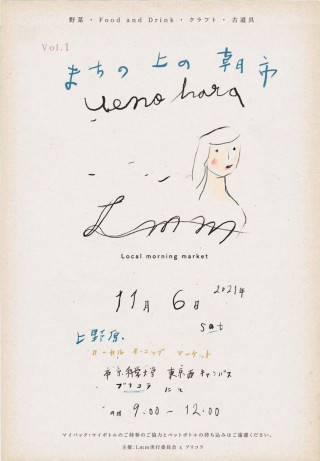 野菜 ・ Food and Drink ・ クラフト ・ 古道具
Vol.1
まちの上の朝市
ueno hara
Lmm
Local morning market
11月 6日 2021年
sat
上野原
ローカル モーニング マーケット
帝京科学大学 東京西キャンパス
ブリコラ にて
時間 9:00〜12:00
マイバック・マイボトルのご持参のご協力とペットボトルの持ち込みはご遠慮ください。
主催:Lmm実行委員会 x ブリコラ